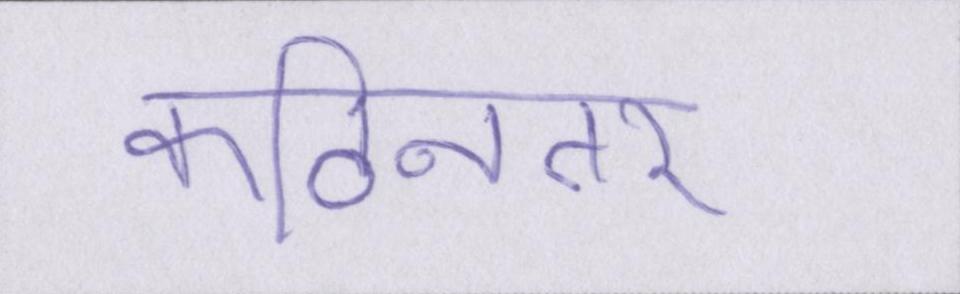 कठिनतर